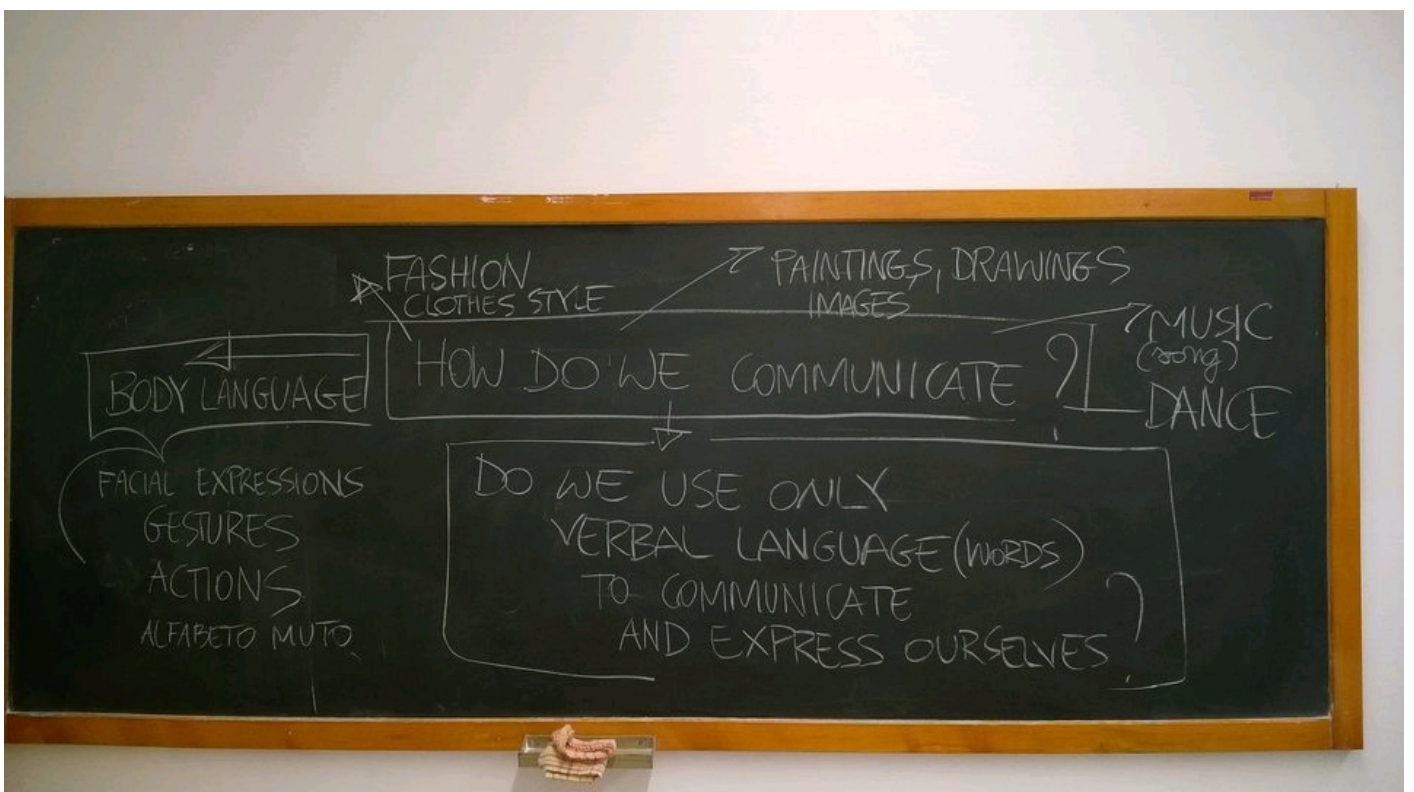 FASHION
CLOTHES STYLE
PAINTINGS, DRAWINGS
IMAGES
MUSIC
(song)
DANCE
HOW DO WE COMMUNICATE ?
BODY LANGUAGE
FACIAL EXPRESSIONS
GESTURES
ACTIONS
ALFABETO MUTO
DO WE USE ONLY
VERBAL LANGUAGE (WORDS)
TO COMMUNICATE
AND EXPRESS OURSELVES ?